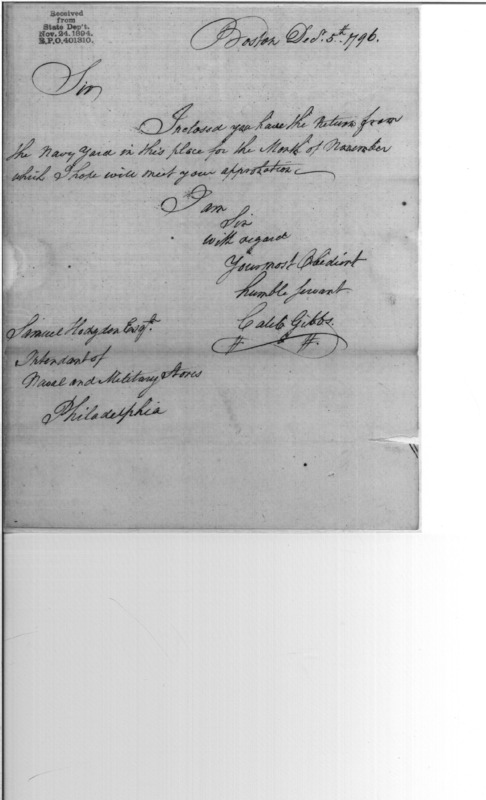 Received
from
State Dep't.
Nov. 24. 1894.
R.P.O. 401310.
Boston Decr. 5th. 1796.
Sir
Inclosed you have the Return from
the Navy Yard in this place for the Month of November
which I hope will meet your approbation
I am
Sir
with regard
Your most Obedient
humble Servant
Caleb Gibbs.
Samuel Hodgdon Esqr.
Intendant of
Naval and Military Stores
Philadelphia